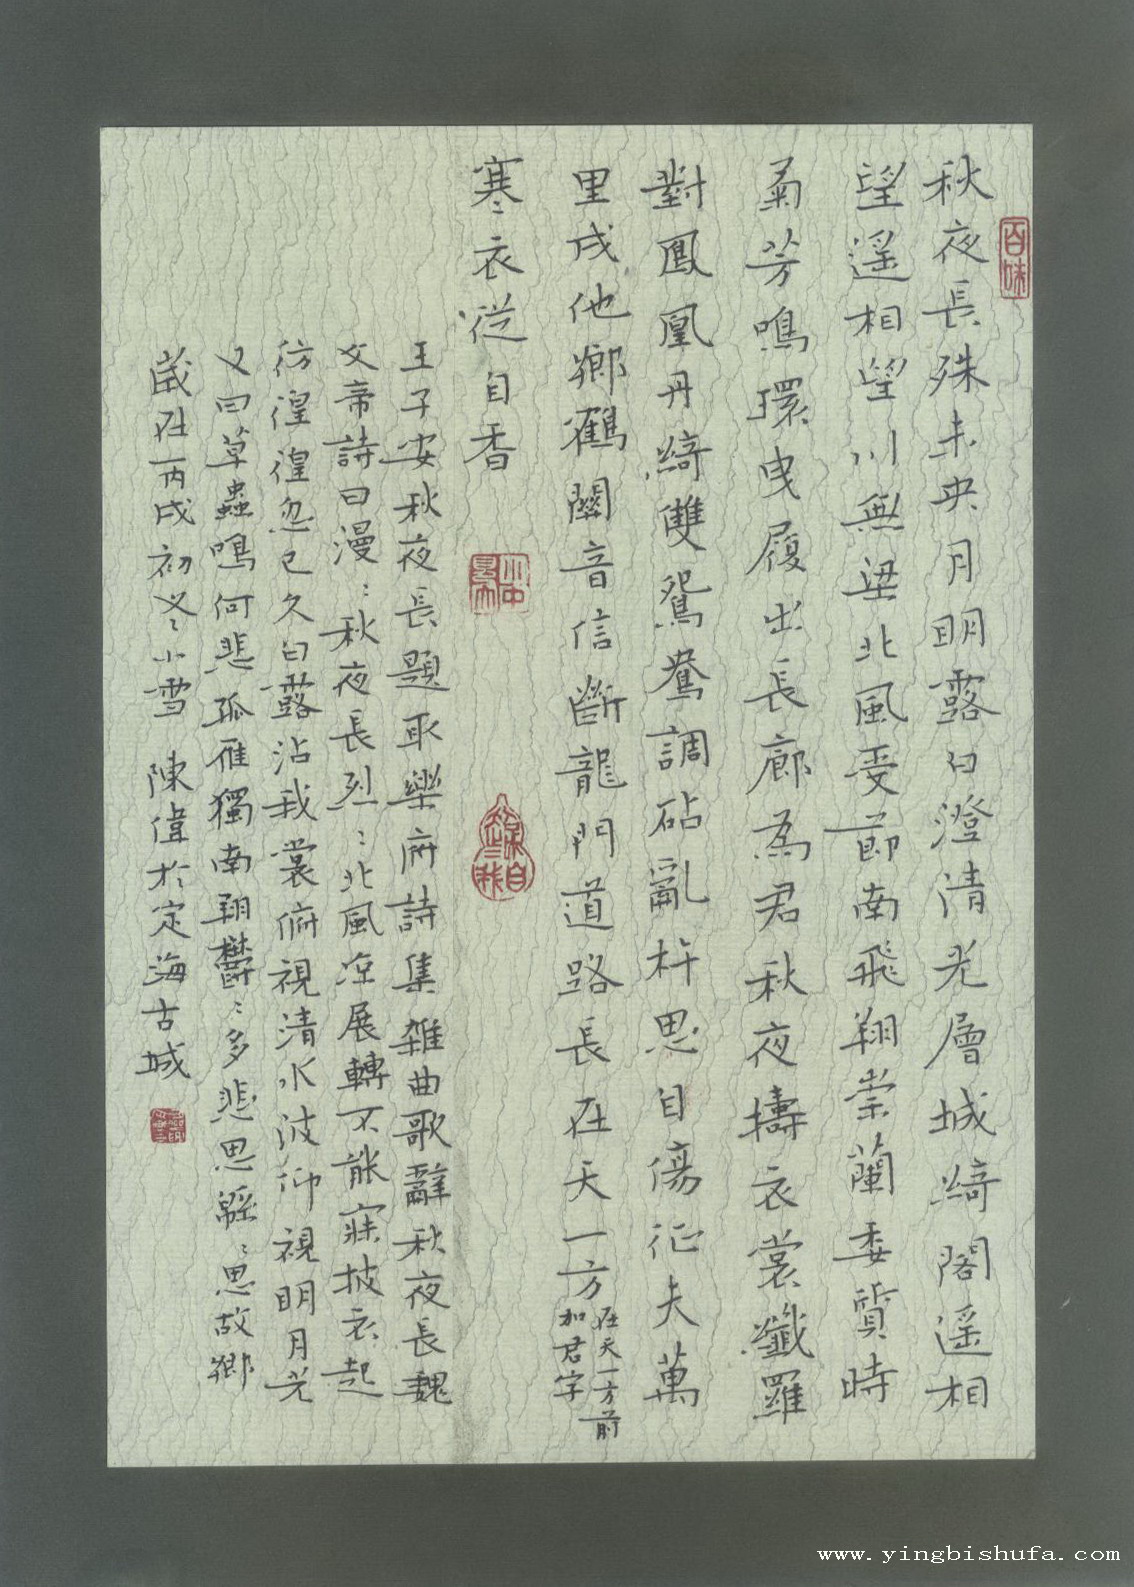 秋夜長殊未央月明露白澄清光層城綺閣遥相
望遥相望川無梁北風受節南飛翔崇蘭委質時
菊芳鳴環曳履出長廊為君秋夜擣衣裳纖羅
對鳳凰丹綺雙鴛鴦調砧亂杵思自傷征夫萬
里戍他鄉鶴關音信斷龍門道路長在天一方
在天一方前
加君字
寒衣從自香
王子安秋夜長題取樂府詩集雜曲歌辭秋夜長魏
文帝詩曰漫〻秋夜長烈〻北風凉展轉不能寐披衣起
彷徨徨忽已久白露沾我裳俯視清水波仰視明月光
又曰草蟲鳴何悲孤雁獨南翔鬱〻多悲思緜〻思故鄉
歲在丙戌初冬小雪 陳偉於定海古城
百味
www.yingbishufa.com